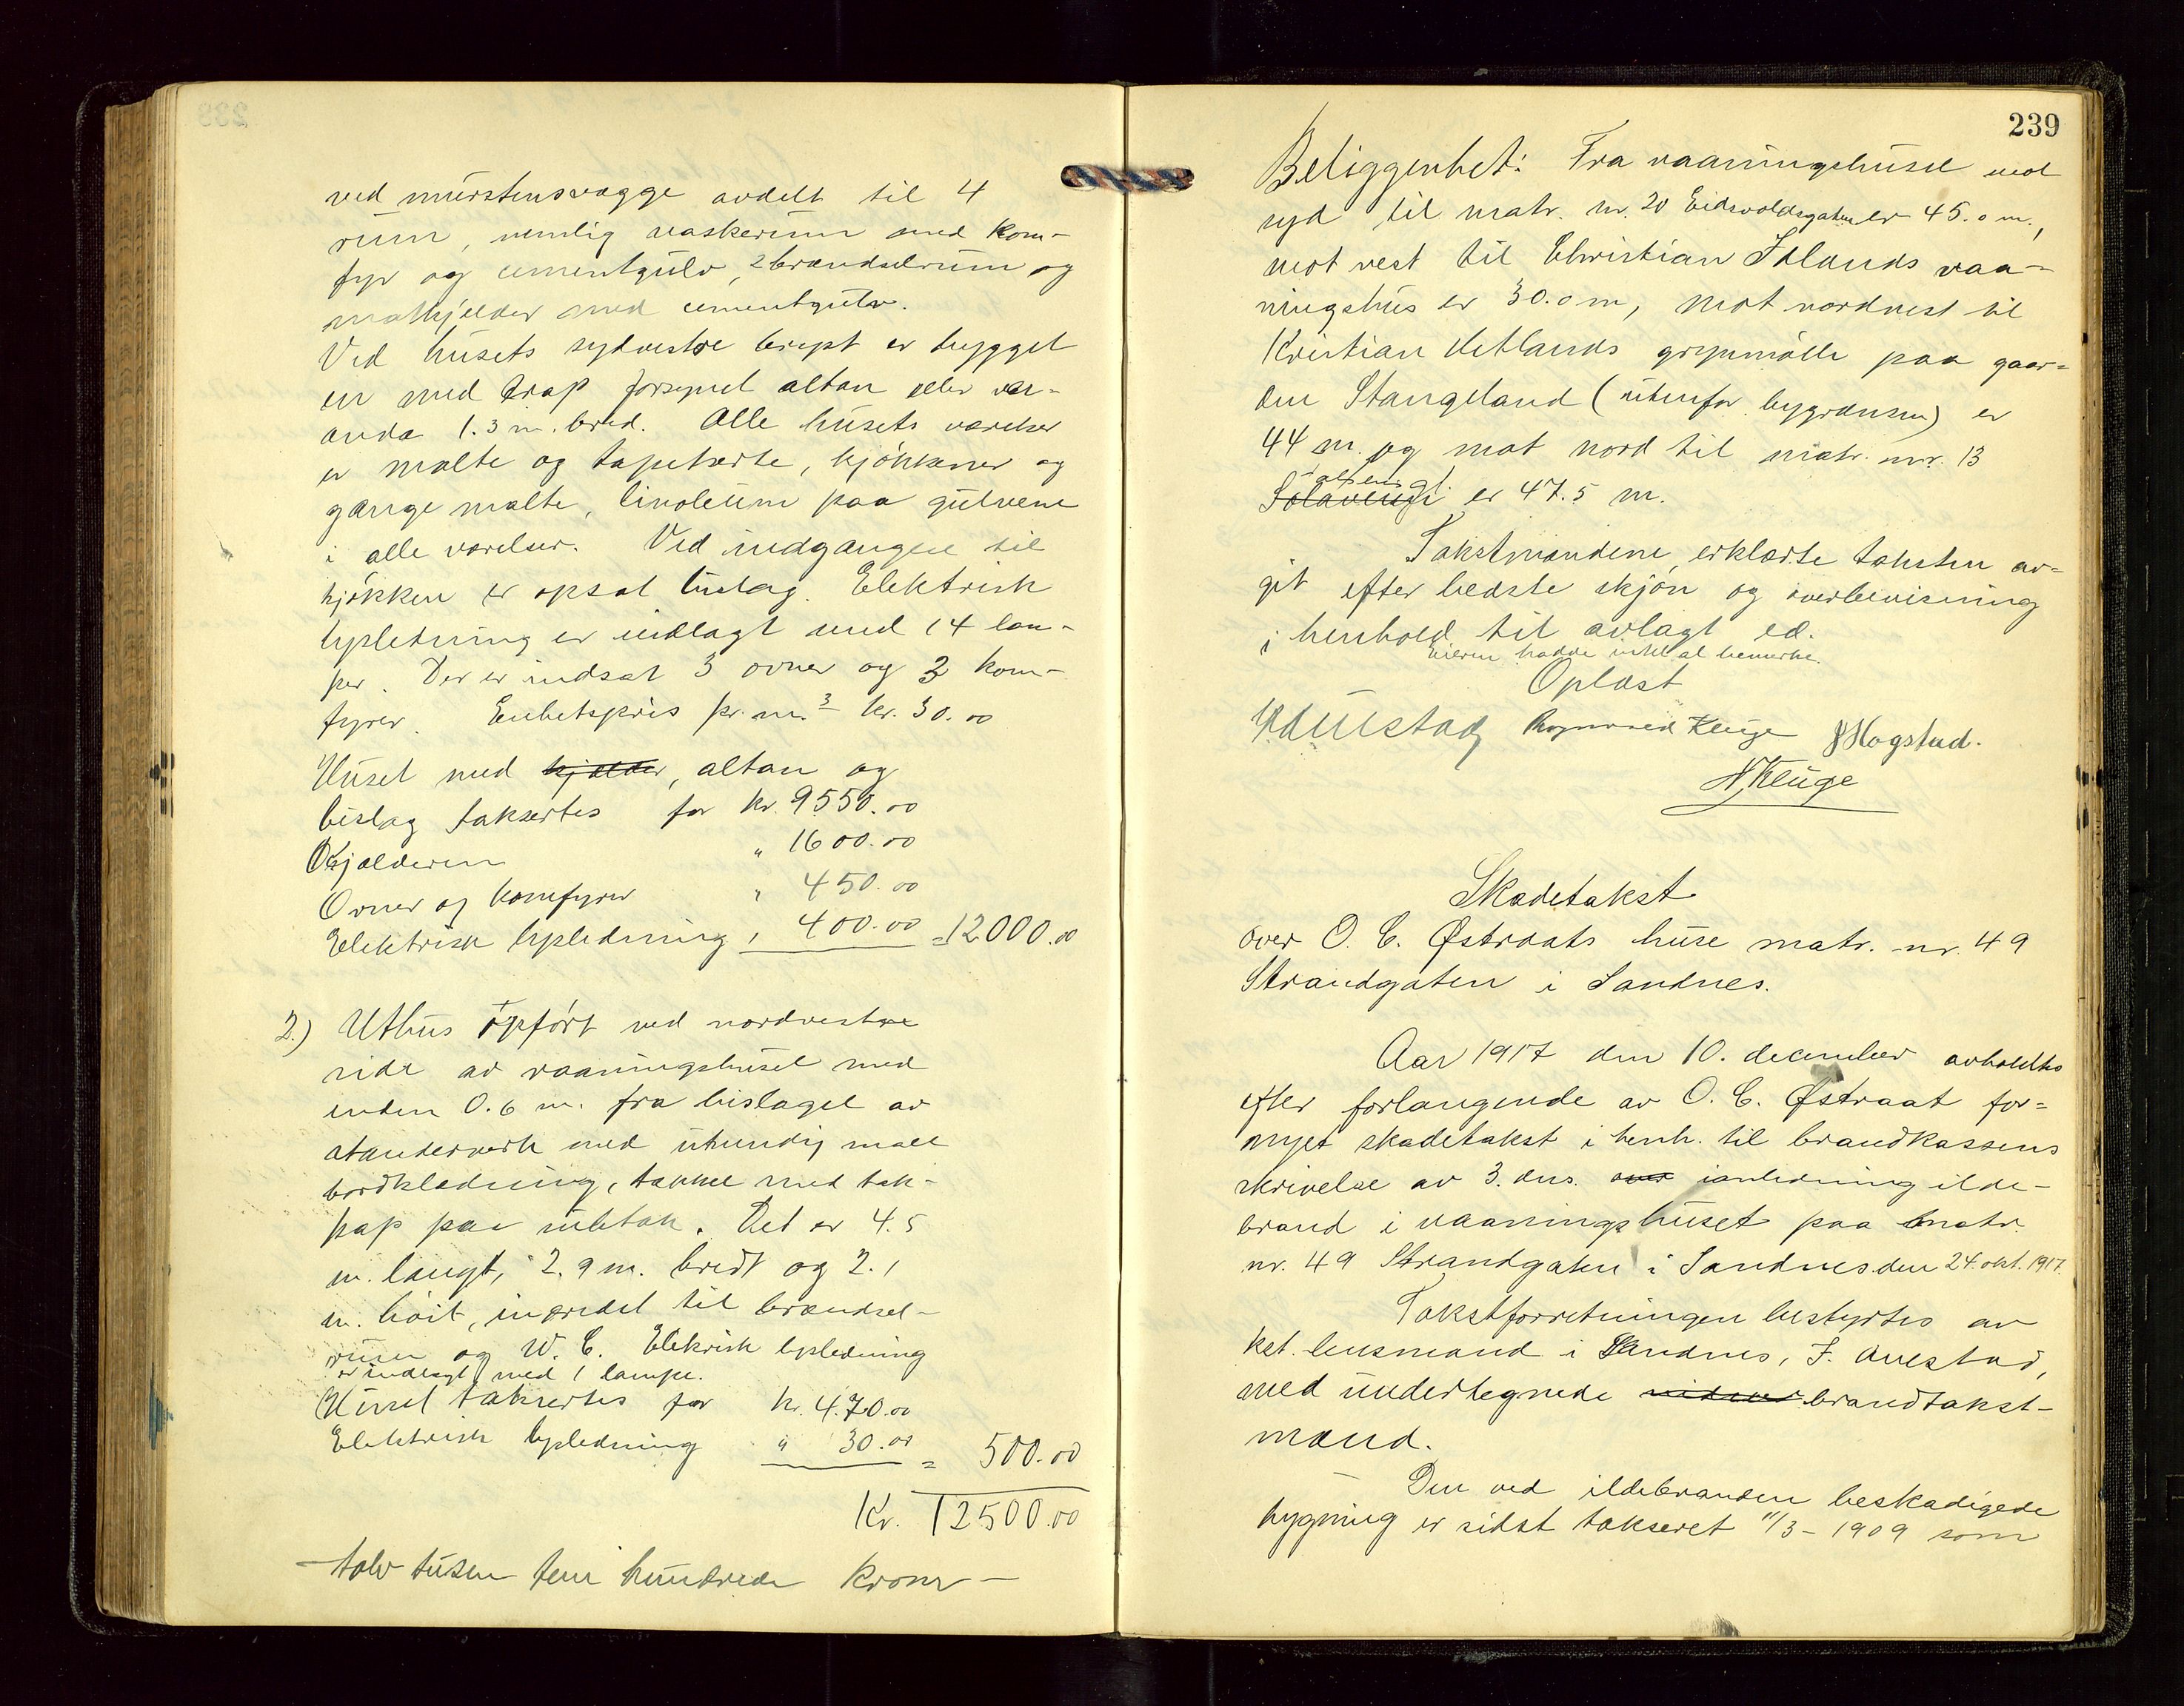 ved murstensvægge avdelt til 4
rum, nemlig vaskerum med kom-
fyr og cementgulv, 2 brændselrum og
matkjelder med cementgulv.
Ved husets sydvestre krypt er bygget
en med trap forsynet altan eller ver-
anda 1.3 m. bred. Alle husets værelser
er malte og tapetserte, kjøkkener og
gange malte, linoleum paa gulvene
i alle værelser. Ved indgangen til
kjøkken er opsat bislag. Elektrisk
lysledning er indlagt med 14 lam-
per. Der er indsat 3 ovner og 3 kom-
fyrer. Enhetspris pr. m.3 kr. 30.00
Huset med kjelder, altan og
bislag taksertes for kr. 9550.00
Kjælderen " 1600.00
Ovner og komfyrer " 450.00
Elektrisk lysledning " 400.00 = 12000.00
2.) Uthus opført ved nordvestre
side av vaaningshuset med
enden 0.6 m. fra bislaget av
standerverk med utvendig malt
bordklædning, tækket med tak-
pap paa undertak. Det er 4.5
m. langt, 2.9 m. bredt og 2.1
m. høit, inredet til brændsel-
rum og W. C. Elekrisk lysledning
er indlagt med 1 lampe.
Huset taksertes for kr. 470.00
Elektrisk lysledning " 30.00 = 500.00
Kr. 12500.00
- tolv tusen fem hundrede kroner -
239
Beliggenhet: Fra vaaningshuset mot
syd til matr. nr. 20 Eidsvoldsgaten er 45.0 m.,
mot vest til Christian Islands vaa-
ningshus er 30.0 m, mot nordvest til
Kristian Vetlands grynmølle paa gaar-
den Stangeland (utenfor bygrænsen) er
44 m. og mot nord til matr. nr. 13
Solavengt er 47.5 m.
Takstmændene erklærte taksten av-
git efter bedste skjøn og overbevisning
i henhold til avlagt ed.
Eieren hadde intet at bemerke.
Oplæst
Auestad Rasmus Kluge J Hogstad.
N. Kluge
Skadetakst
over O. C. Østraats huse matr. nr. 49
Strandgaten i Sandnes.
Aar 1917 den 10. december avholdtes
efter forlangende av O. C. Østraat for-
nyet skadetakst i henh. til brandkassens
skrivelse av 3. dns. over i anledning ilde-
brand i vaaningshuset paa matr.
nr. 49 Strandgaten i Sandnes den 24. okt. 1917.
Takstforretningen bestyrtes av
kst. lensmand i Sandnes, J. Auestad,
med undertegnede brandtakst-
mænd.
Den ved ildebranden beskadigede
bygning er sidst takseret 11/3 - 1909 som